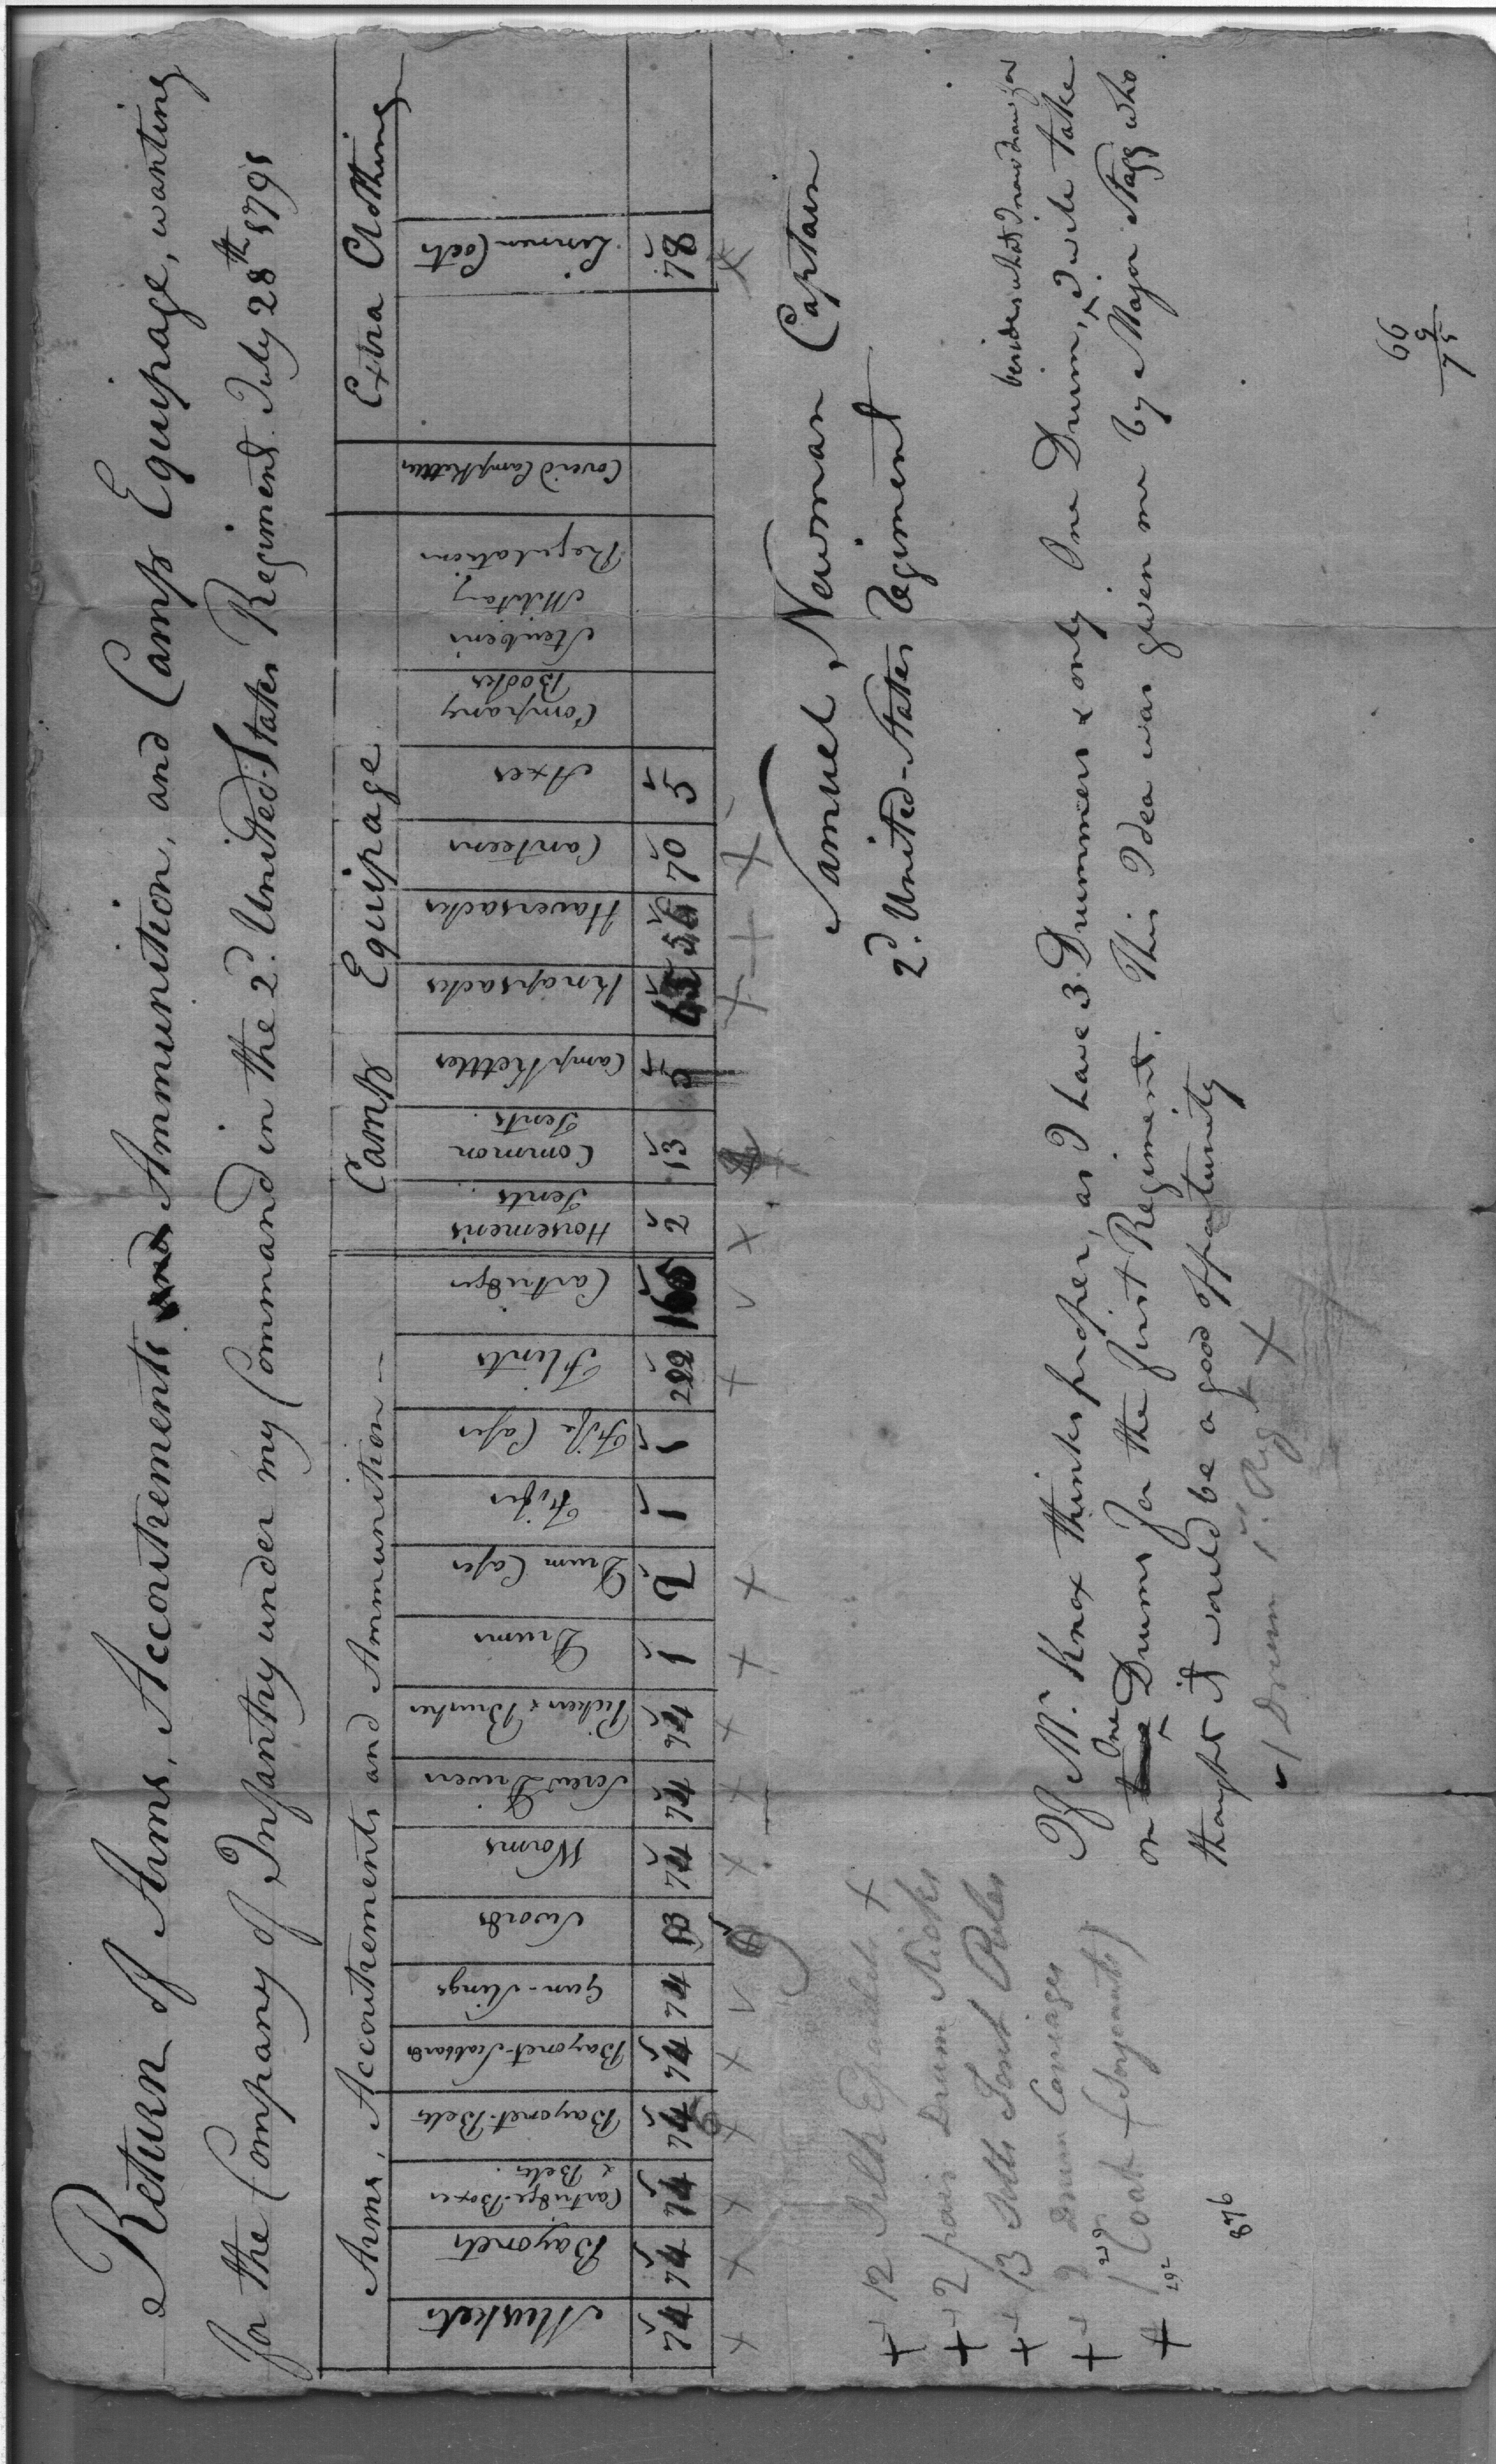 Return of Arms, Accoutrements Ammunition, and Camp Equipage, wanting
for the Company of Infantry under my Command in the 2d. United-States Regiment July 28th 1791
Arms, Accoutrements and Ammunition
Camp Equipage
Extra Clothing
Muskets
Bayonets
Cartridge-Boxes & Belts
Bayonet-Belts
Bayonet-Scabbards
Gun-Slings
Swords
Worms
Screw Drivers
Pickers & Brushes
Drums
Drum Cases
Fifes
Fife Cases
Flints
Cartridges
Horsemens Tents
Common Tents
Camp Kettles
Knapsacks
Haversacks
Canteens
Axes
Company Books
Steuben's Military Regulations
Cover'd Camp Kettles
Linnen Coats
74 74 74 74 74 74 13 74 74 74 1 2 1 1 222 2 13 5 65 56 70 5 78
Samuel Newman Captain
2d. United-States Regiment
+ 12 Silk Epaulets +
+ 2 pair Drum Sticks
+ 13 Setts Tent Poles
+ 2 Drum Carriages
+ 1 Coat (Serjeants)
876
besides what I now draw for
If Mr. Knox thinks proper, as I have 3 Drummers & only One Drum, I will take
on One Drums for the first Regiment. This Idea was given me by Major Stagg who
thought it would be a good opportunity
1 Drum 1st. Reg +
66
9
75